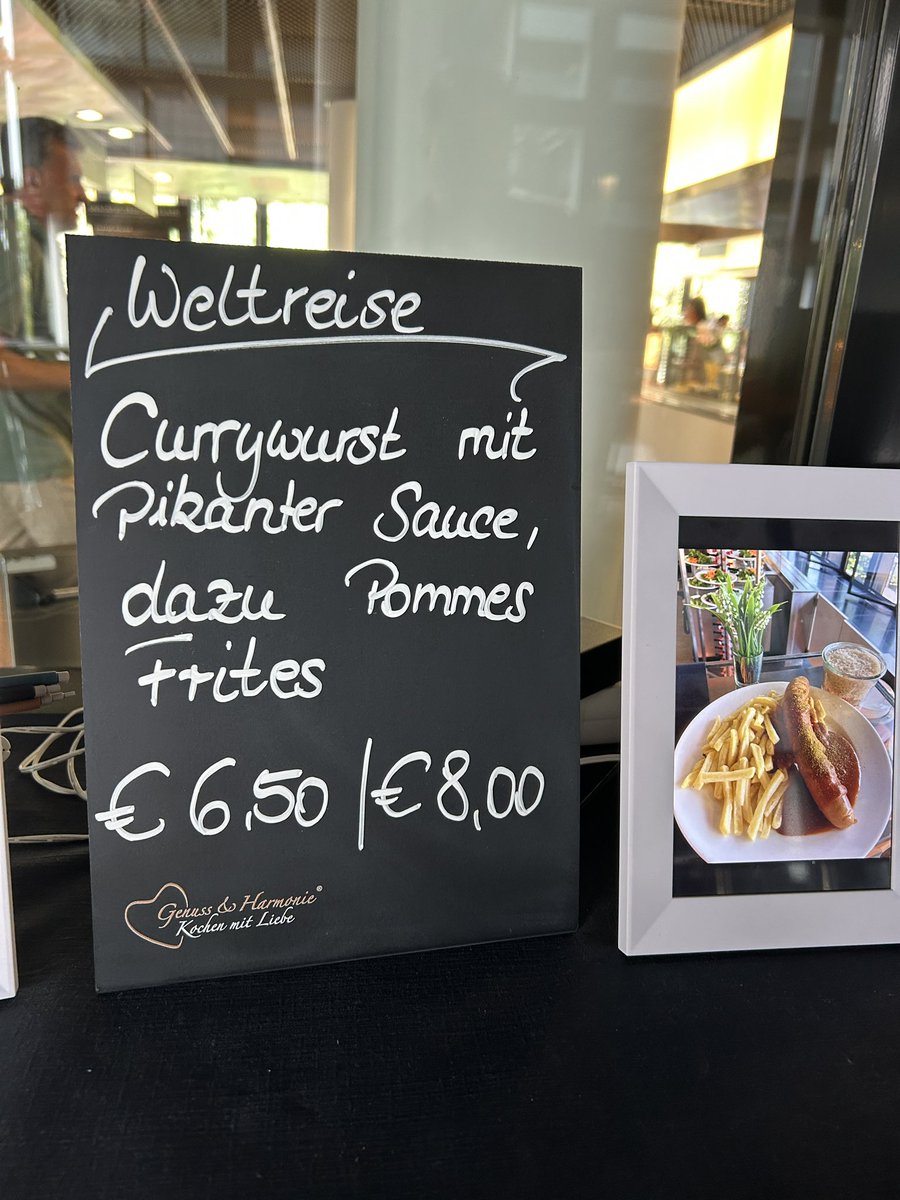 Weltreise
Currywurst mit
Pikanter Sauce,
dazu Pommes
Frites
€ 6,50 | € 8,00
Genuss & Harmonie®
Kochen mit Liebe